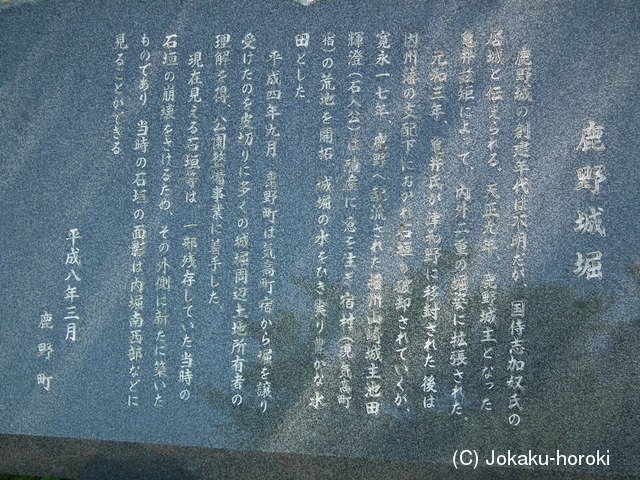 鹿野城堀
鹿野城の創建年代は不明だが、国侍志加奴氏の
居城と伝えられる。天正九年、鹿野城主となった
亀井茲矩によって、内外二重の堀姿に拡張された。
元和三年、亀井氏が津和野に移封された後は
因州藩の支配下におかれ石垣も破却されていくが、
寛永一七年、鹿野へ配流された播州山崎城主池田
輝澄(石入公)は殖産に意を注ぎ宿村(現気高町
宿)の荒地を開拓、城堀の水をひき実り豊かな水
田とした
平成四年九月 鹿野町は気高町宿から堀を譲り
受けたのを皮切りに多くの城堀周辺土地所有者の
理解を得、公園整備事業に着手した。
現在見える石垣等は、一部残存していた当時の
石垣の崩壊をさけるため、その外側に新たに築いた
ものであり、当時の石垣の面影は内堀南西部などに
見ることができる
平成八年三月
鹿野町
(C) Jokaku-horoki